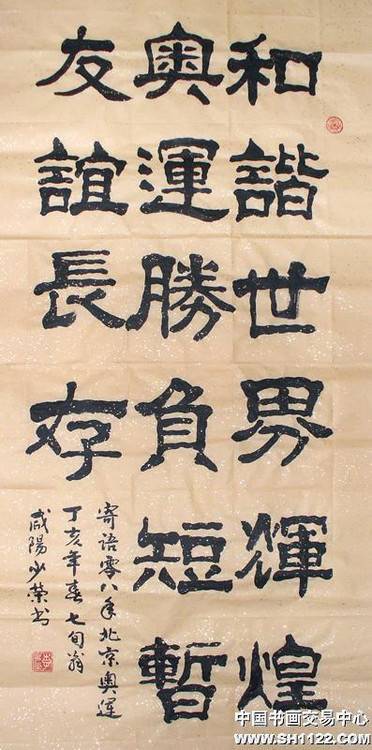 和諧世界輝煌
奥運勝負短暫
友誼長存
寄語零八年北京奥运
丁亥年春七旬翁
咸陽少荣书
中国书画交易中心
www.SH1122.com